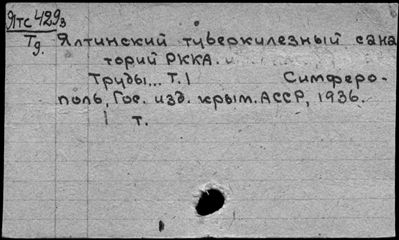 Ятс 429з
Тд.
Ялтинский туберкулезный сана
торий РККА.
Труды... Т. 1 Симферо-
поль, Гос. изд. крым. АССР, 1936.
1 т.